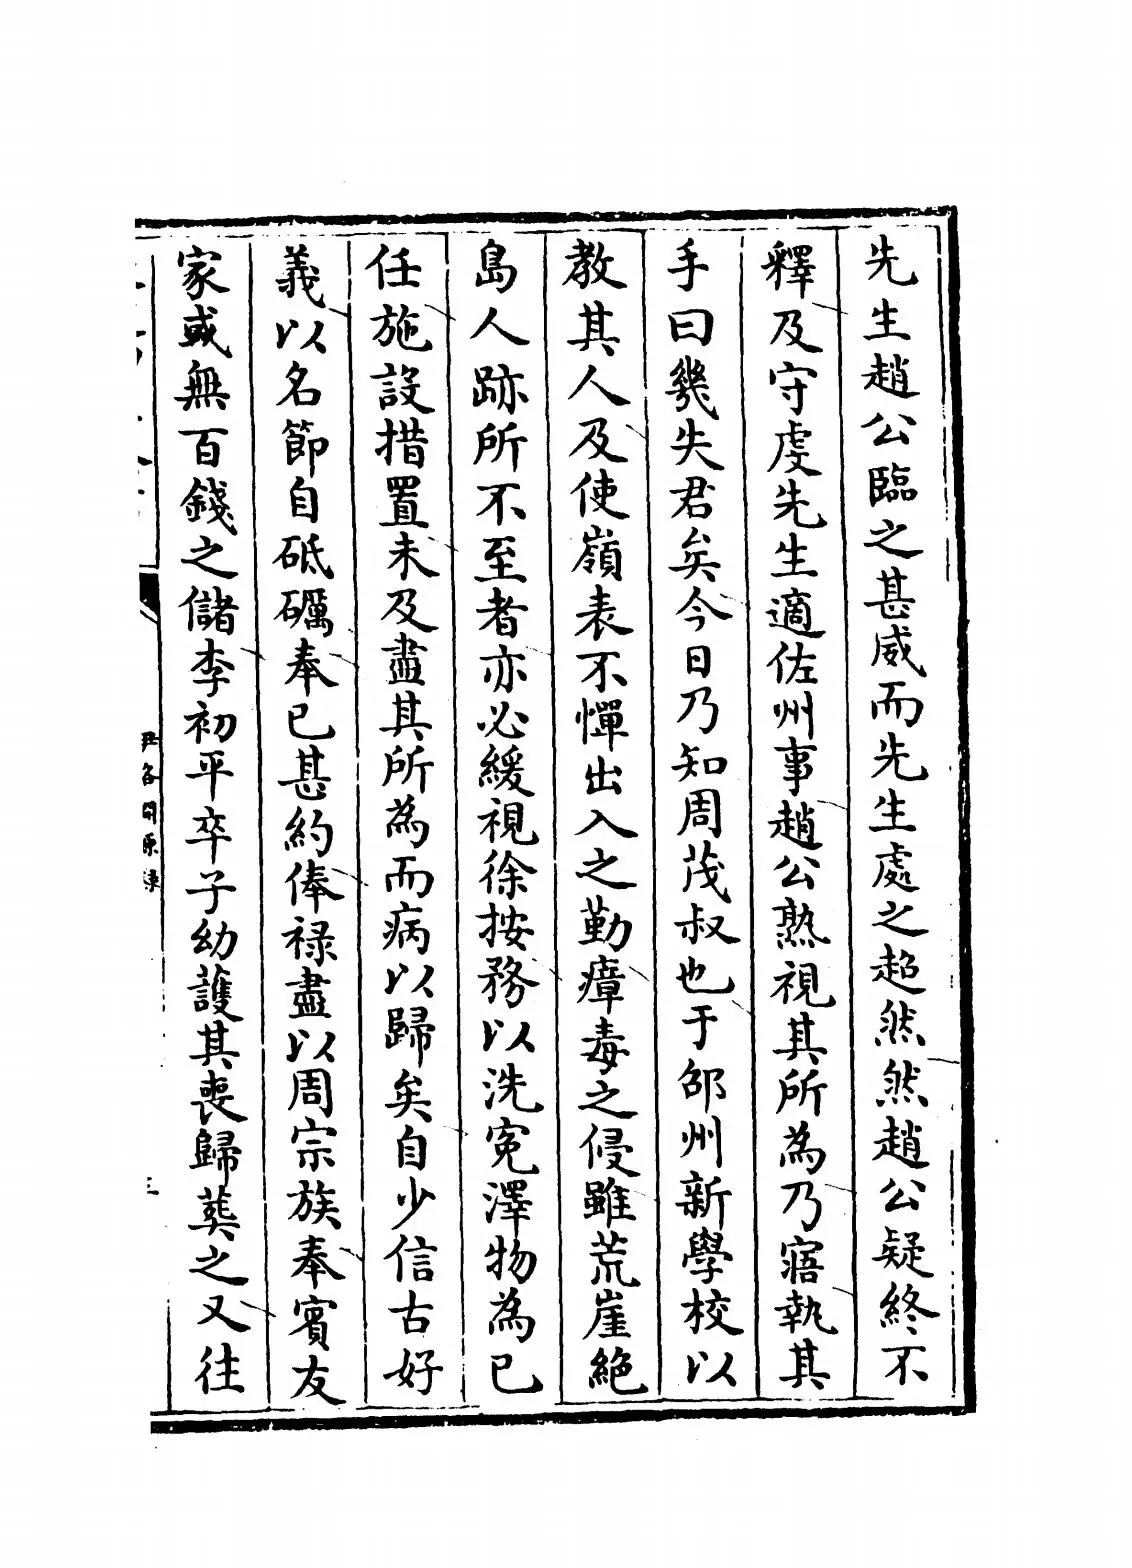 先生趙公臨之甚威而先生處之超然然趙公疑終不
釋及守虔先生適佐州事趙公熟視其所為乃寤執其
手曰幾失君矣今日乃知周茂叔也于邵州新學校以
教其人及使嶺表不憚出入之勤瘴毒之侵雖荒崖絶
島人跡所不至者亦必緩視徐按務以洗寃澤物為已
任施設措置未及盡其所為而病以歸矣自少信古好
義以名節自砥礪奉已甚約俸禄盡以周宗族奉賓友
家或無百錢之儲李初平卒子幼護其喪歸葬之又往